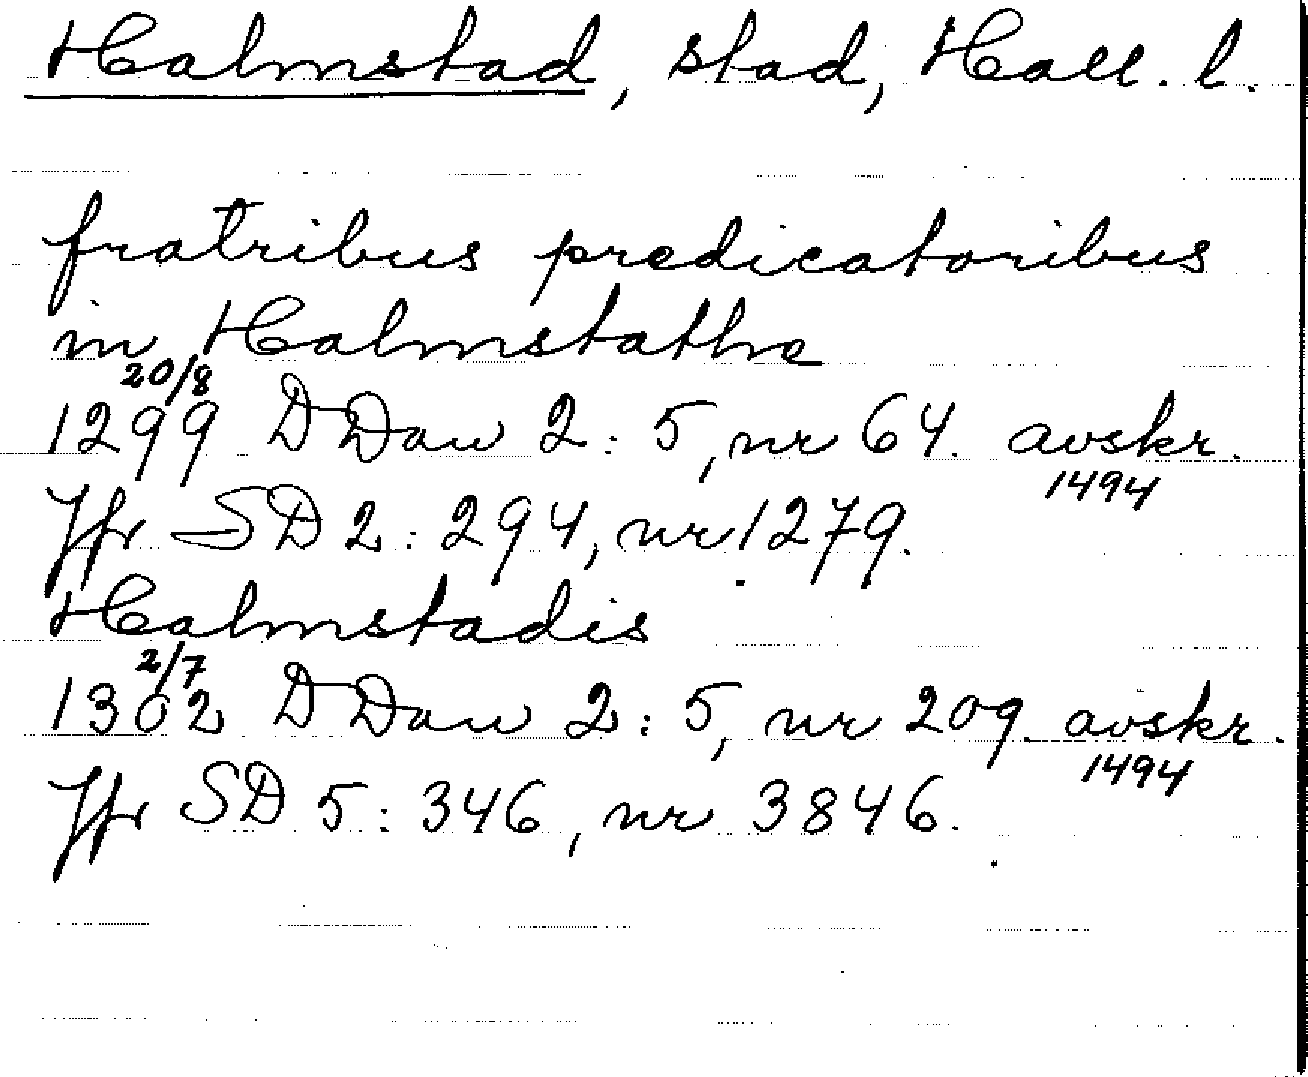 Halmstad, stad, Hall. l.
fratribus predicatoribus
in Halmstathe
20/8
1299 DDan 2: 5, nr 64. avskr.
1494
Jfr SD 2: 294, nr 1279.
Halmstadis
2/7
1302 DDan 2: 5, nr 209. avskr.
1494
Jfr SD 5: 346, nr 3846.